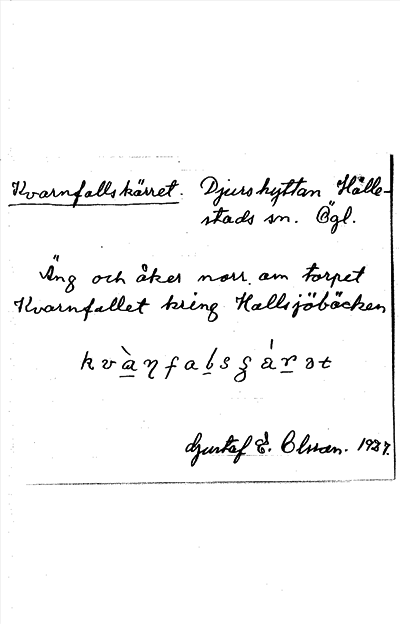 Kvarnfallskärret. Djurshyttan Hälle-
stads sn. Ögl.
Äng och åker norr om torpet
Kvarnfallet kring Hallsjöbäcken
Gustaf E. Olsson. 1937.